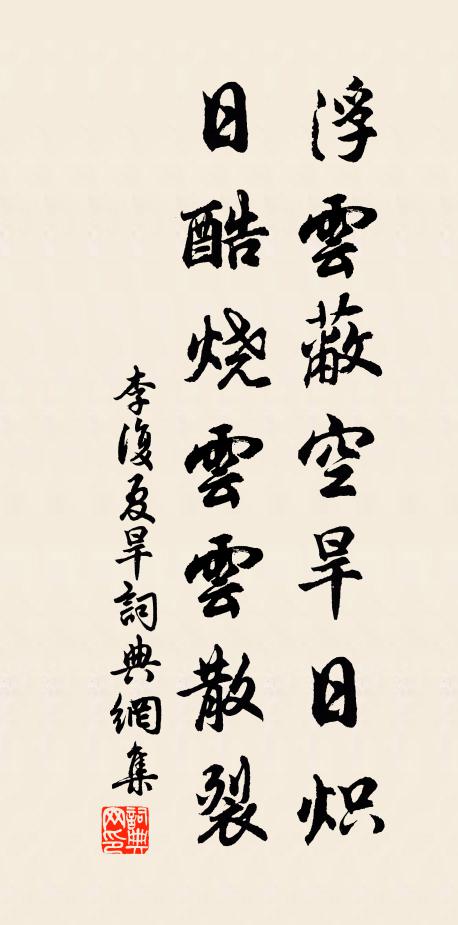 浮雲蔽空旱日炽
日酷烧雲雲散裂
李復夏旱詞典網集
詞典網印